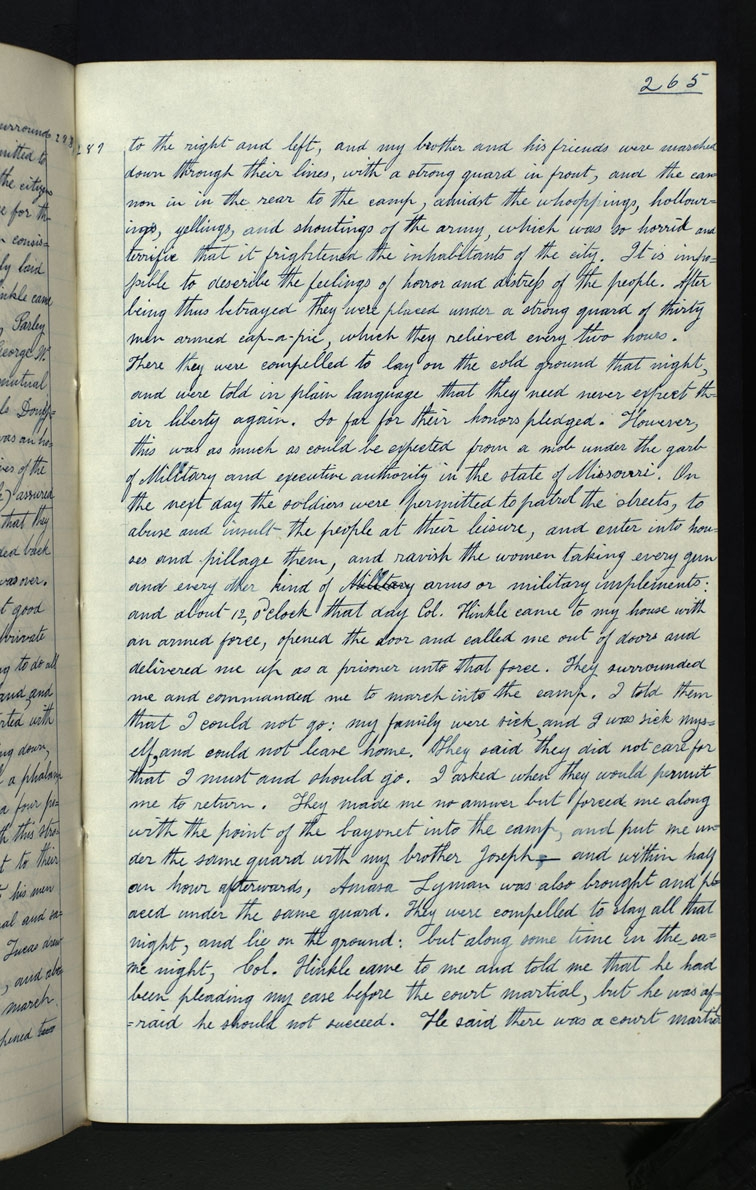 265
289
to the right and left, and my brother and his friends were marched
down through their lines, with a strong guard in front, and the can=
non in in the rear to the camp, amidst the whooppings, hollow=
ings, yellings, and shoutings of the army, which was so horrid and
terrific that it frightened the inhabitants of the city. It is impo=
ssible to describe the feelings of horror and distress of the people. After
being thus betrayed they were placed under a strong guard of thirty
men armed cap-a-pie, which they relieved every two hours.
There they were compelled to lay on the cold ground that night,
and were told in plain language that they need never expect th=
eir liberty again. So far for their honors pledged. However,
this was as much as could be expected from a mob under the garb
of Military and executive authority in the state of Missouri. On
the next day the soldiers were permitted to patrol the streets, to
abuse and insult the people at their leisure, and enter into hou=
ses and pillage them, and ravish the women taking every gun
and every other kind of Military arms or military implements:
and about 12, o'clock that day Col. Hinkle came to my house with
an armed force, opened the door and called me out of doors and
delivered me up as a prisoner unto that force. They surrounded
me and commanded me to march into the camp. I told them
that I could not go: my family were sick, and I was sick mys=
elf, and could not leave home. They said they did not care for
that I must and should go. I asked when they would permit
me to return. They made me no answer but forced me along
with the point of the bayonet into the camp, and put me un=
der the same guard with my brother Joseph; — and within half
an hour afterwards, Amasa Lyman was also brought and pl=
aced under the same guard. They were compelled to stay all that
night, and lie on the ground: but along some time in the sa=
me night, Col. Hinkle came to me and told me that he had
been pleading my case before the court martial, but he was af=
=raid he should not succeed. He said there was a court martial